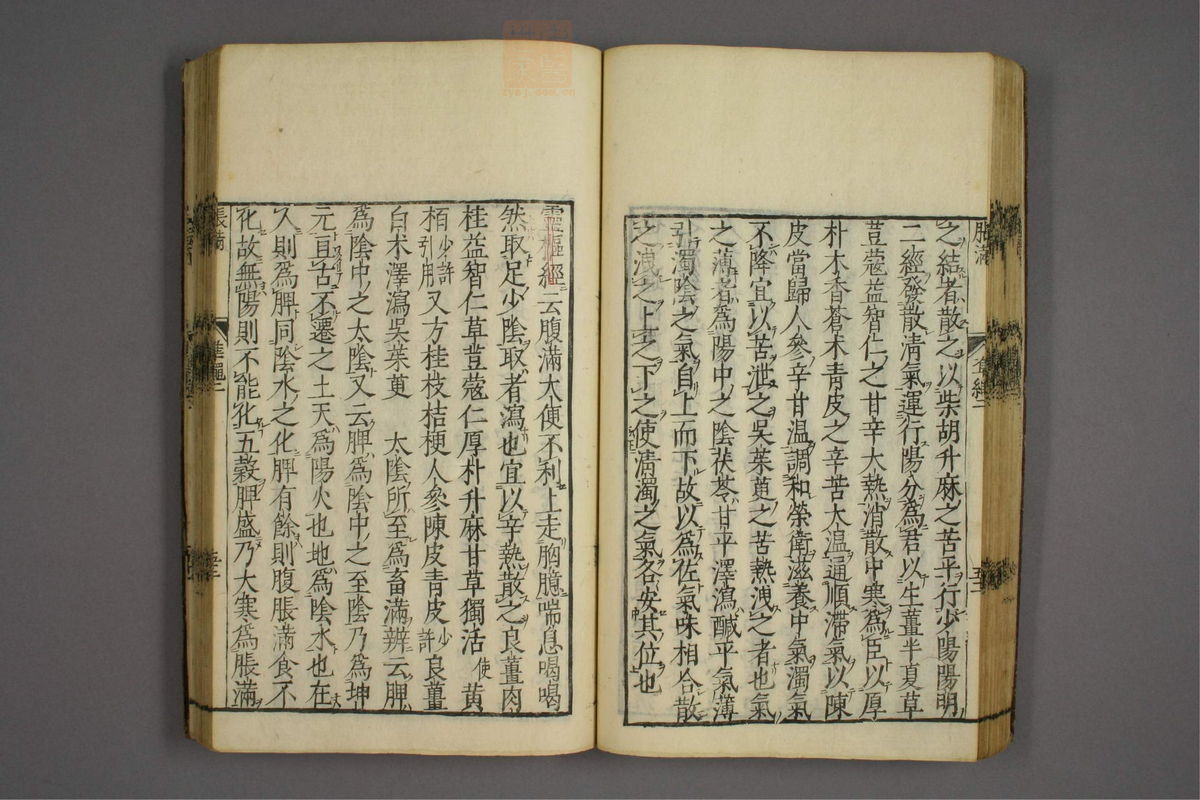 之結者散之以柴胡升麻之苦平行少陽陽明
二經發散淸氣運行陽分爲君以生薑半夏草
荳蔻益智仁之甘辛大熱消散中寒爲臣以厚
朴木香蒼朮靑皮之辛苦大温通順滯氣以陳
皮當歸人參辛甘温調和榮衛滋養中氣濁氣
不降宜以苦泄之吳茱萸之苦熱洩之者也氣
之薄者爲陽中之陰茯苓甘平澤瀉醎平氣薄
引濁陰之氣自上而下故以爲佐氣味相合散
之洩之上之下之使淸濁之氣各安其位也
靈樞經云腹滿大便不利上走胸臆喘息喝喝
然取足少陰取者瀉也宜以辛熱散之良薑肉
桂益智仁草荳蔻仁厚朴升麻甘草獨活使黄
栢少許引用又方桂枝桔梗人參陳皮靑皮少許良薑
白术澤瀉吳茱萸　太陰所至爲畜滿辨云脾
爲陰中之太陰又云脾爲陰中之至陰乃爲坤
元亘古不遷之土天爲陽火也地爲陰水也在
人則爲脾同陰水之化脾有餘則腹脹滿食不
化故無陽則不能化五穀脾盛乃大寒爲脹滿
脹滿